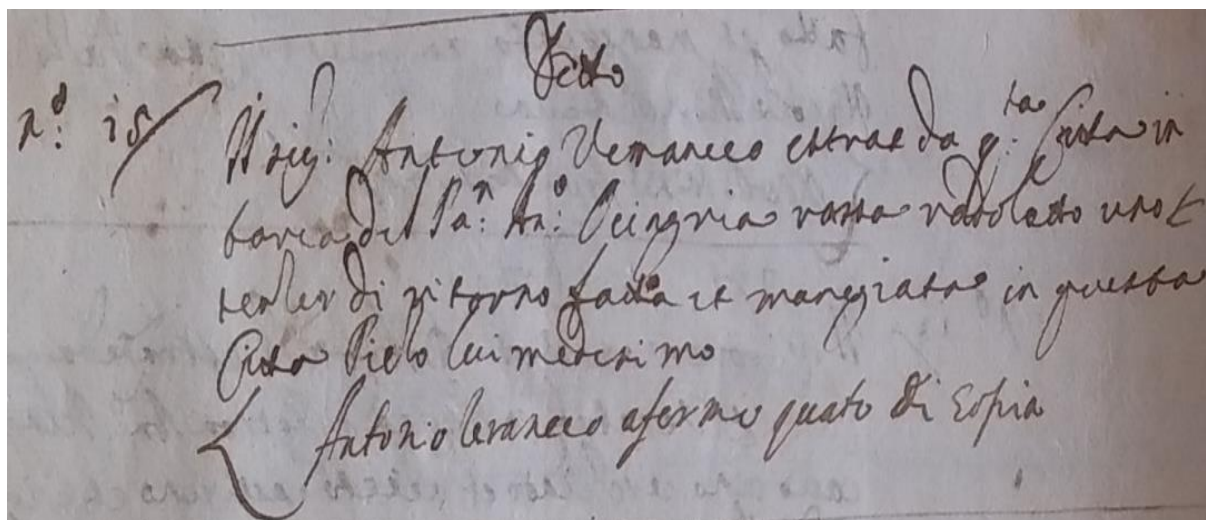 Detto
n.º 15 Il sig: Antonio Vemaneco estrae da q:ta Citta in
barca del Pa:n An:o Pcingria rassa rodoletto uno
di ritorno fatta et mangiatas in questa
Citta Pielo lui medesimo
Antonio afermo quato di sopia